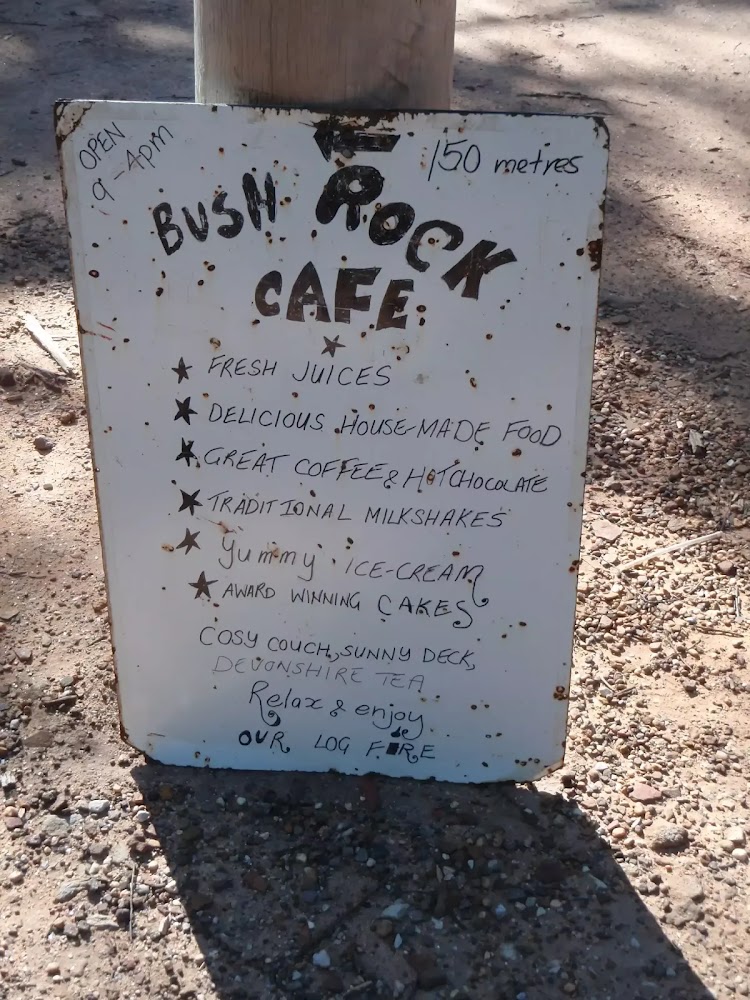 OPEN
9-4pm
150 metres
BUSH ROCK
CAFE
FRESH JUICES
DELICIOUS HOUSE-MADE FOOD
GREAT COFFEE & HOT CHOCOLATE
TRADITIONAL MILKSHAKES
Yummy ICE-CREAM
AWARD WINNING CAKES
COSY COUCH, SUNNY DECK,
DEVONSHIRE TEA
Relax & enjoy
OUR LOG FIRE